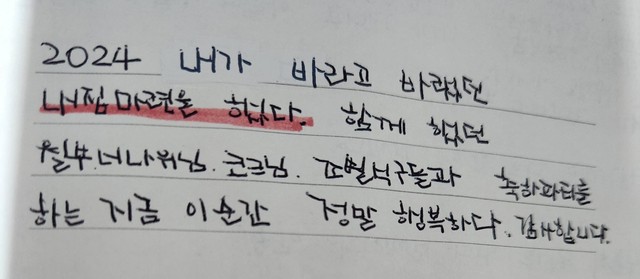 2024 내가 바라고 바랬던
내집마련을 했다. 함께 했던
월부.너나위님. 코크님. 조별식구들과 축하파티를
하는 지금 이 순간 정말 행복하다. 감사합니다.